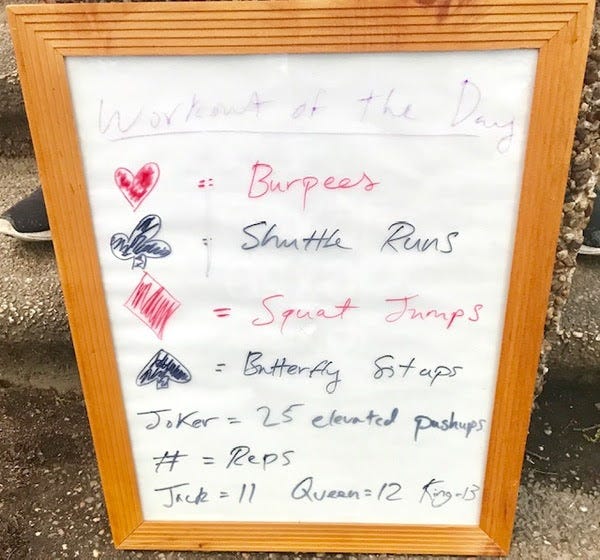 Workout of the Day
= Burpees
= Shuttle Runs
= Squat Jumps
= Butterfly Situps
Joker = 25 elevated pushups
# = Reps
Jack = 11 Queen = 12 King = 13